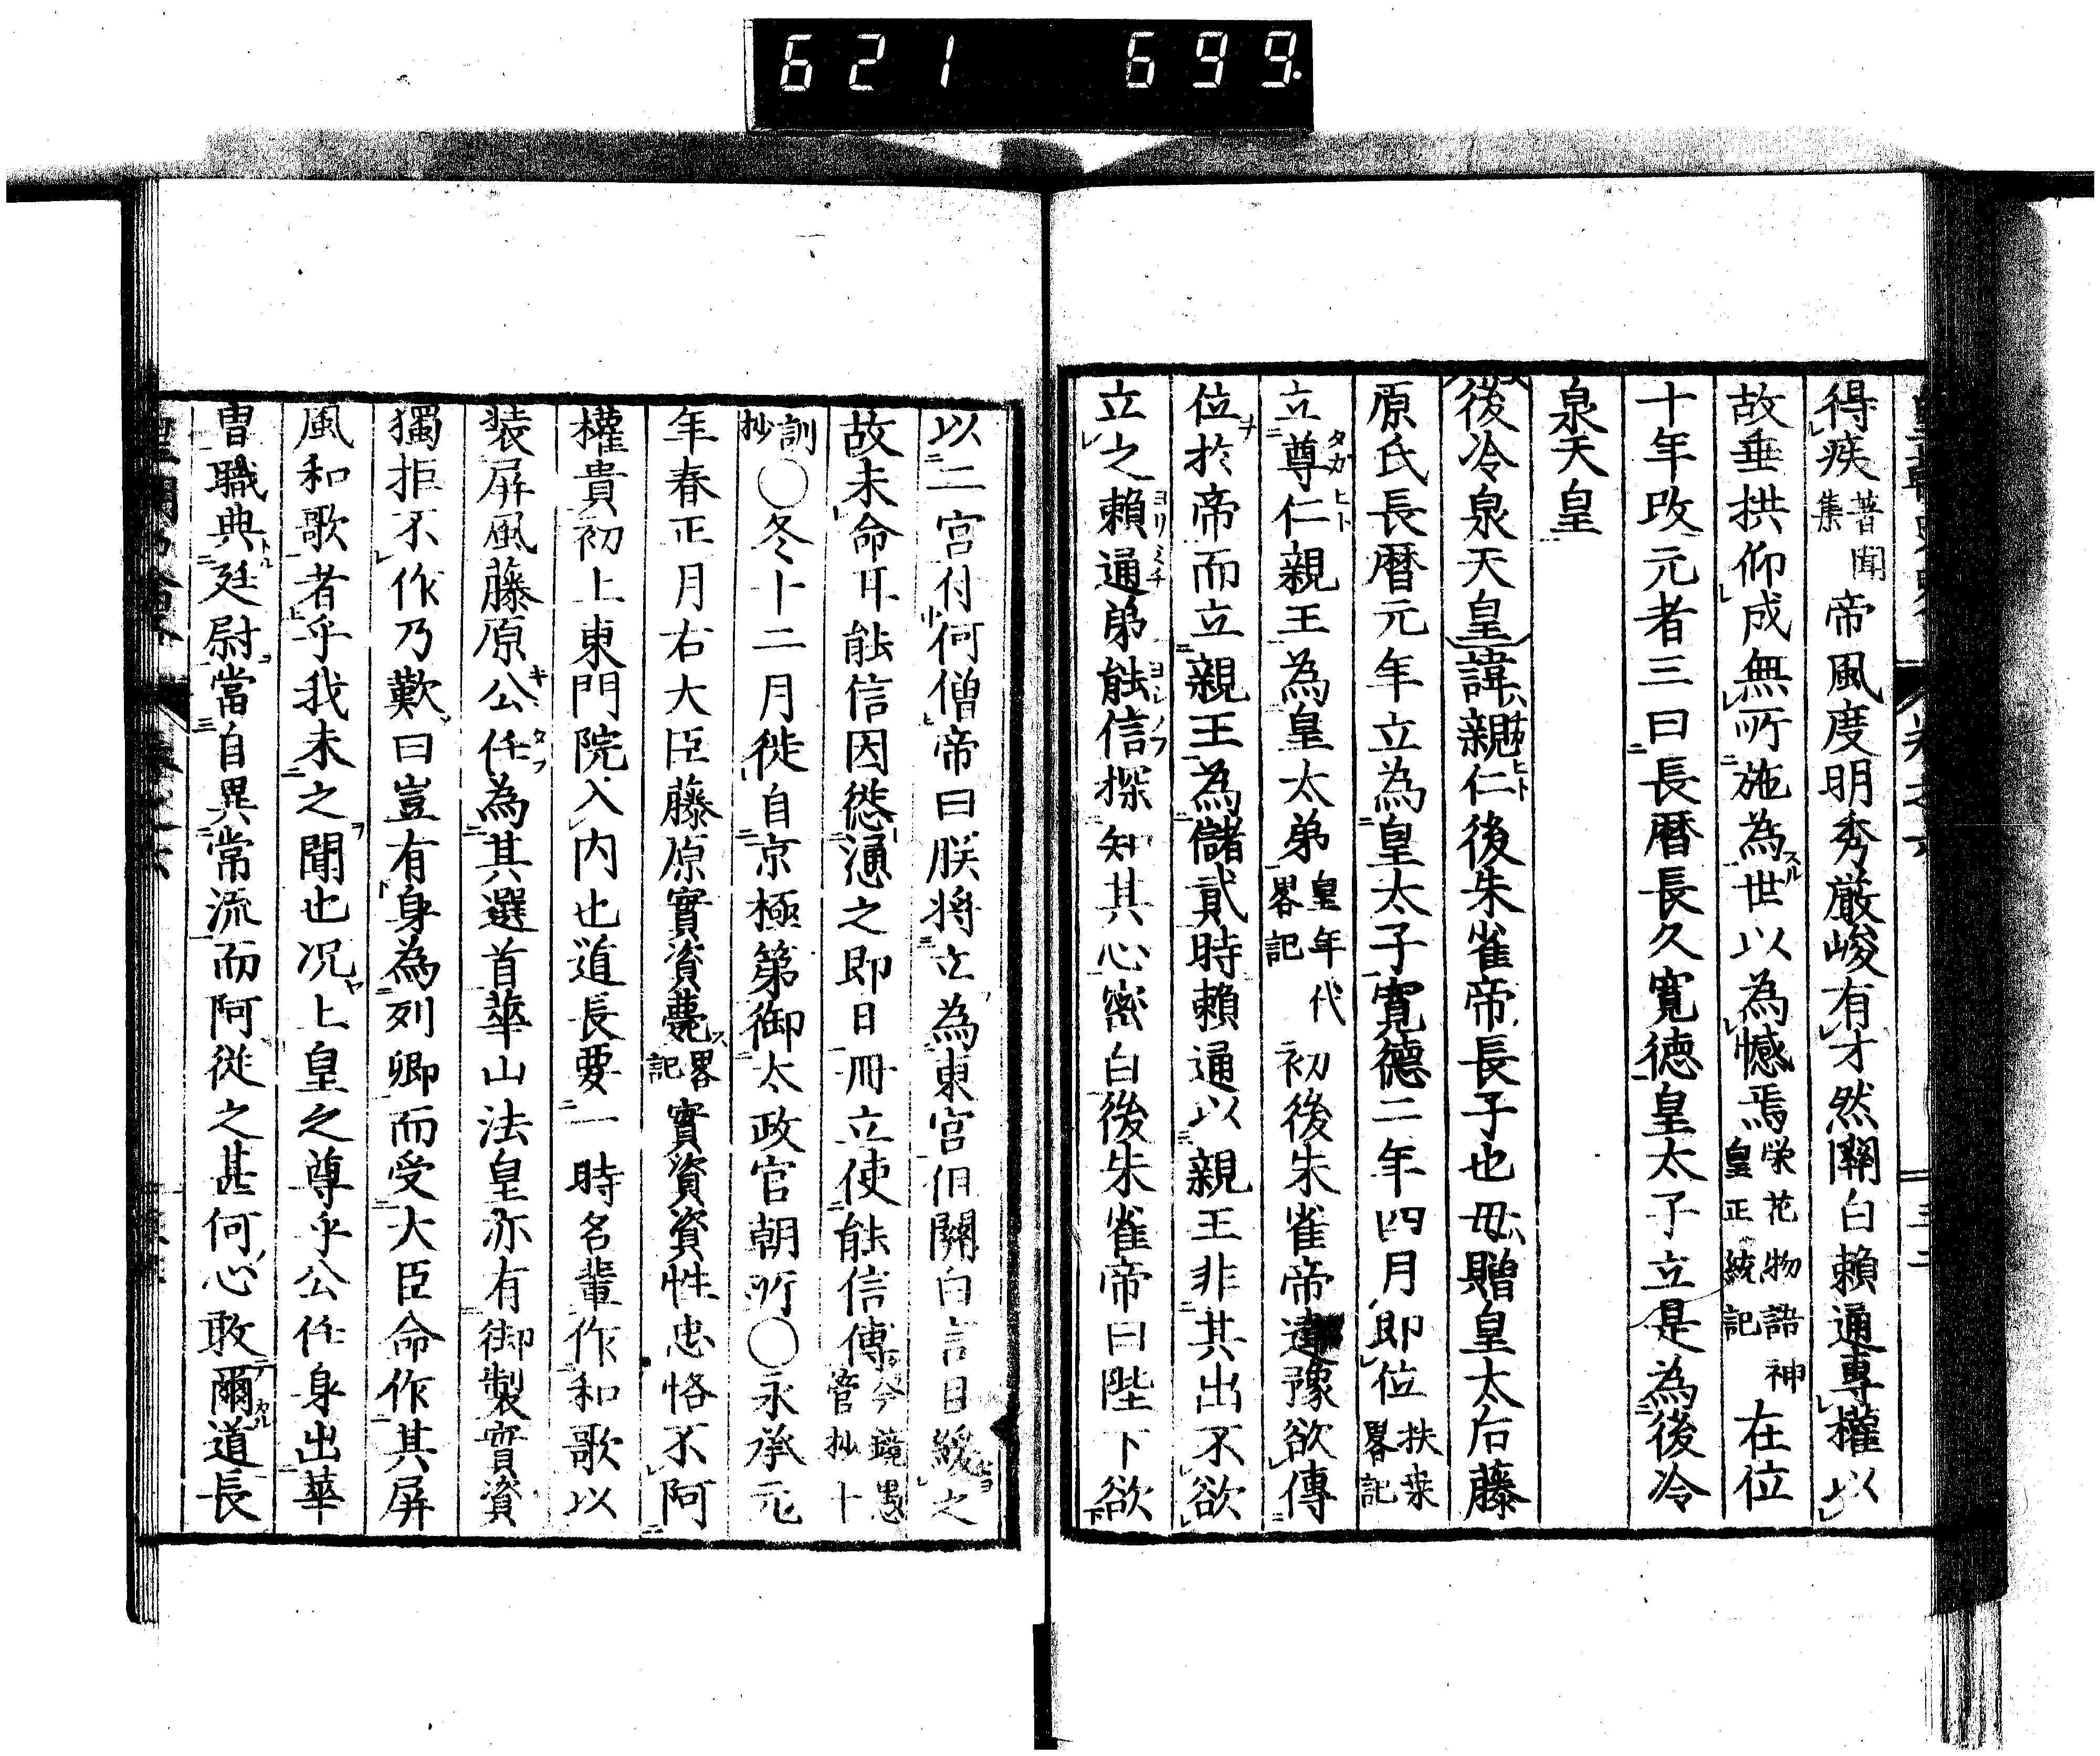 621 699.
得疾著聞集帝風度明秀厳峻有才然關白頼通專權以
故垂拱仰成無所施為世以為憾焉栄花物語神皇正統記在位
十年改元者三曰長暦長久寛徳皇太子立是為後冷
泉天皇
後冷泉天皇諱親仁後朱雀帝長子也母贈皇太后藤
原氏長暦元年立為皇太子寛德二年四月即位扶桒畧記
立尊仁親王為皇太弟皇年代畧記初後朱雀帝違豫欲傳
位於帝而立親王為儲貳時頼通以親王非其出不欲
立之頼通弟能信探知其心密白後朱雀帝曰陛下欲
以二宮付何僧帝曰朕将立為東宮但關白言日緩之
故未命耳能信因慫慂之即日冊立使能信傅今鏡愚管抄十
訓抄〇冬十二月徙自京極第御太政官朝所〇永承元
年春正月右大臣藤原實資薨畧記實資資性忠恪不阿
權貴初上東門院入内也道長要一時名輩作和歌以
装屏風藤原公任為其選首華山法皇亦有御製實資
獨拒不作乃歎曰豈有身為列卿而受大臣命作其屏
風和歌者乎我未之聞也况上皇之尊乎公任身出華
胄職典廷尉當自異常流而阿従之甚何心敢爾道長